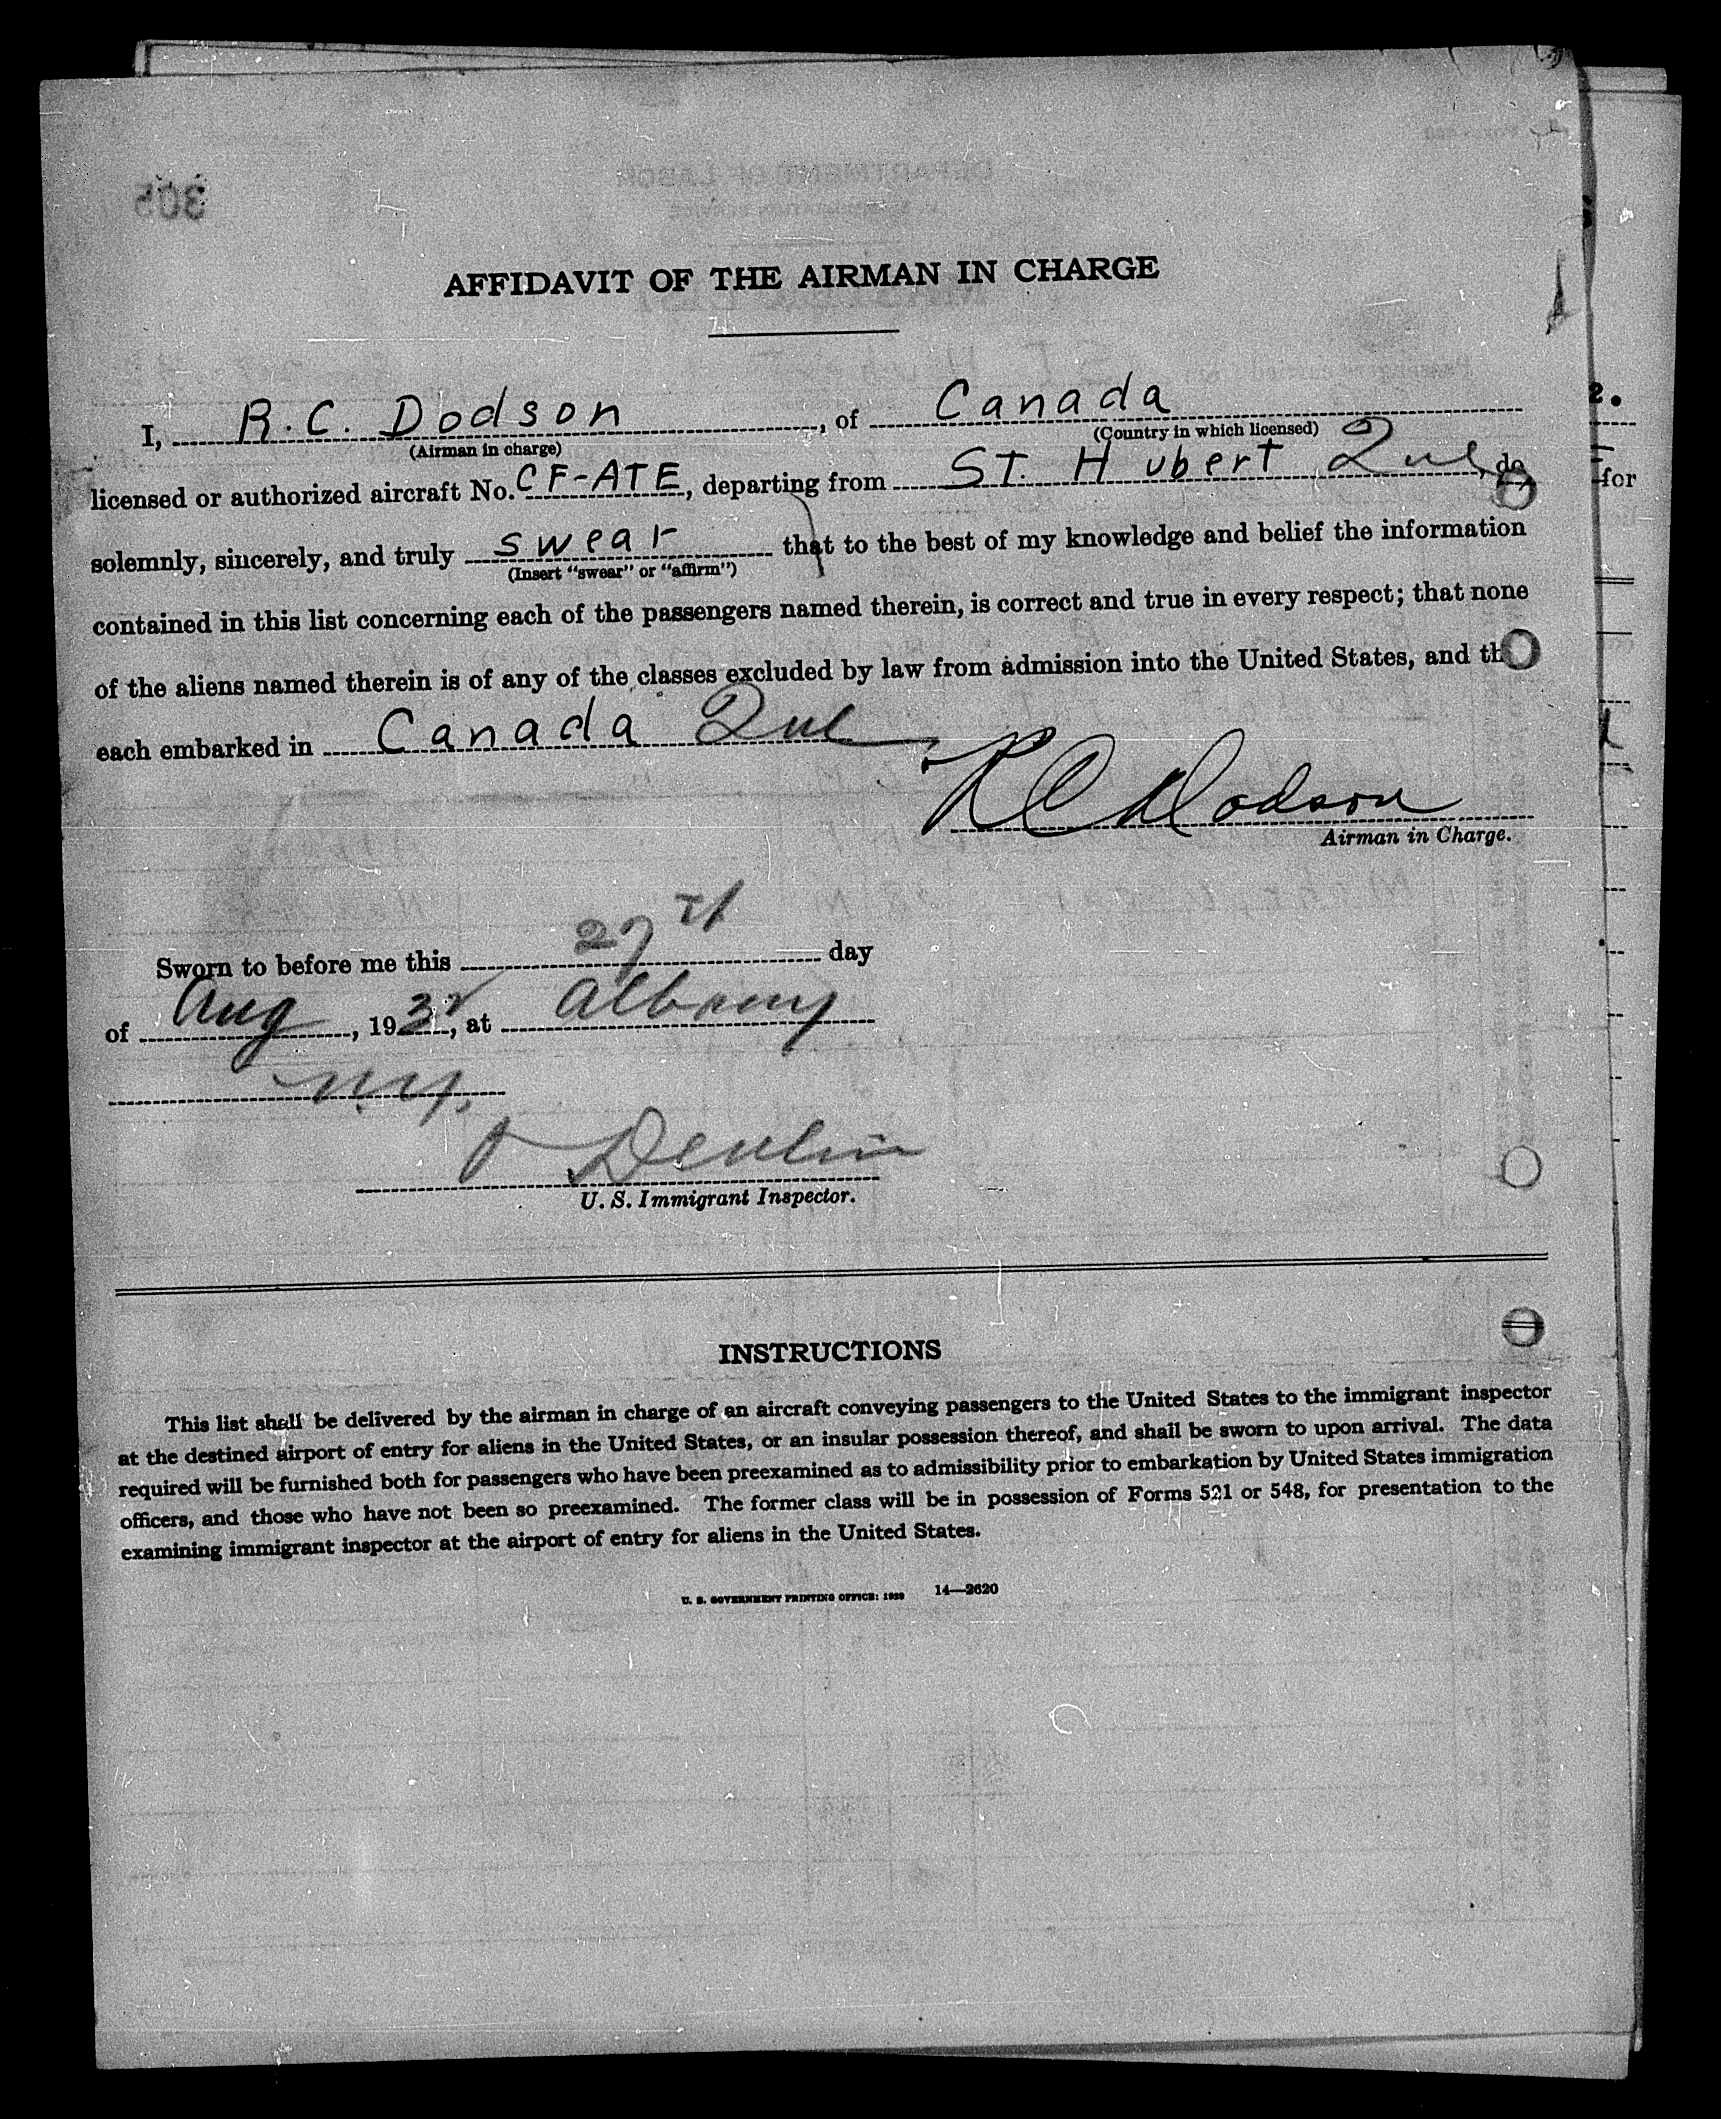 305
AFFIDAVIT OF THE AIRMAN IN CHARGE
I, R. C. Dodson, of Canada
(Airman in charge) (Country in which licensed)
licensed or authorized aircraft No. CF-ATE, departing from ST. Hubert Que, do
solemnly, sincerely, and truly swear that to the best of my knowledge and belief the information
(Insert "swear" or "affirm")
contained in this list concerning each of the passengers named therein, is correct and true in every respect; that none
of the aliens named therein is of any of the classes excluded by law from admission into the United States, and th
each embarked in Canada Que
R C Dodson
Airman in Charge.
Sworn to before me this 27th day
of Aug, 1932, at Albany
N.Y.
Devlin
U. S. Immigrant Inspector.
INSTRUCTIONS
This list shall be delivered by the airman in charge of an aircraft conveying passengers to the United States to the immigrant inspector
at the destined airport of entry for aliens in the United States, or an insular possession thereof, and shall be sworn to upon arrival. The data
required will be furnished both for passengers who have been preexamined as to admissibility prior to embarkation by United States immigration
officers, and those who have not been so preexamined. The former class will be in possession of Forms 521 or 548, for presentation to the
examining immigrant inspector at the airport of entry for aliens in the United States.
U. S. GOVERNMENT PRINTING OFFICE: 1929 14—2620
for